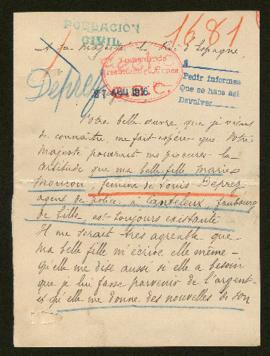 POBLACION
CIVIL
1681
A Sa Majesté le Roi d'Espagne
Deprez
Pedir informes
Que se hace así
Devolver
Votre belle œuvre, que je viens
de connaître, me fait espérer que Votre
Majesté pourrait me procurer la
certitude que ma belle fille Marie
femme de Louis Deprez
agent de police à Canteleux, faubourg
de Lille, est toujours existante
Il me serait très agréable que
ma belle fille m'écrive elle même –
Qu'elle me dise aussi si elle a besoin
que je lui fasse parvenir de l'argent
et qu'elle me donne des nouvelles de son